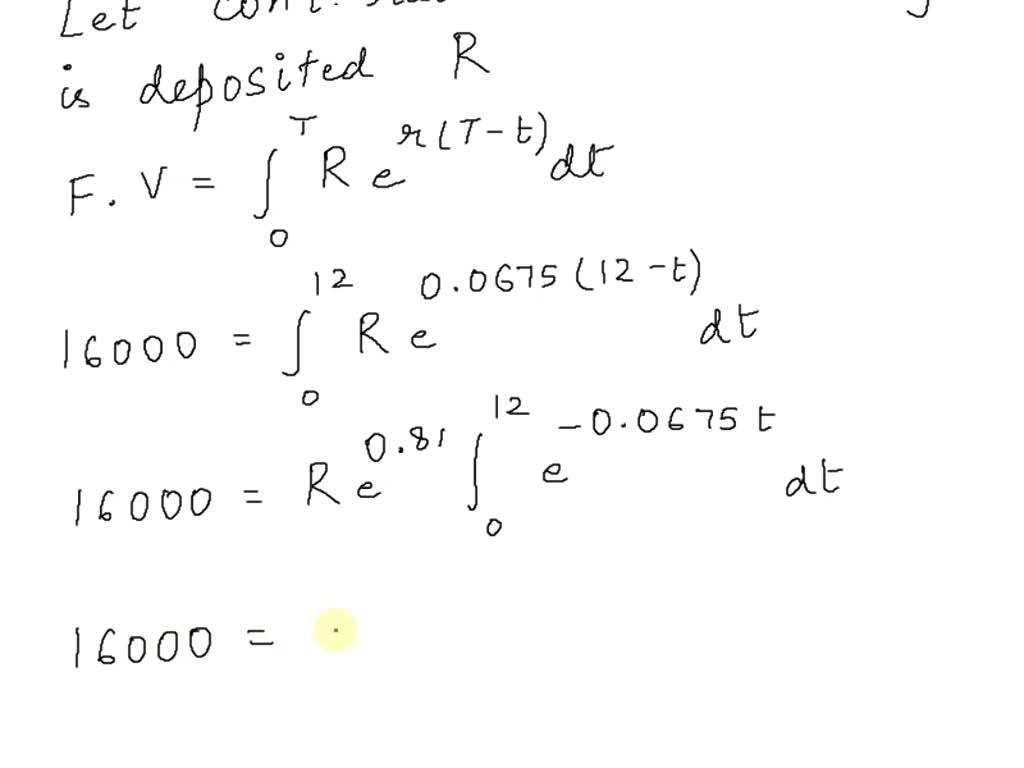 Let
is deposited R
F.V = ∫₀ᵀ R e^{r(T-t)} dt
16000 = ∫₀¹² R e^{0.0675(12-t)} dt
16000 = R e^{0.81} ∫₀¹² e^{-0.0675t} dt
16000 =